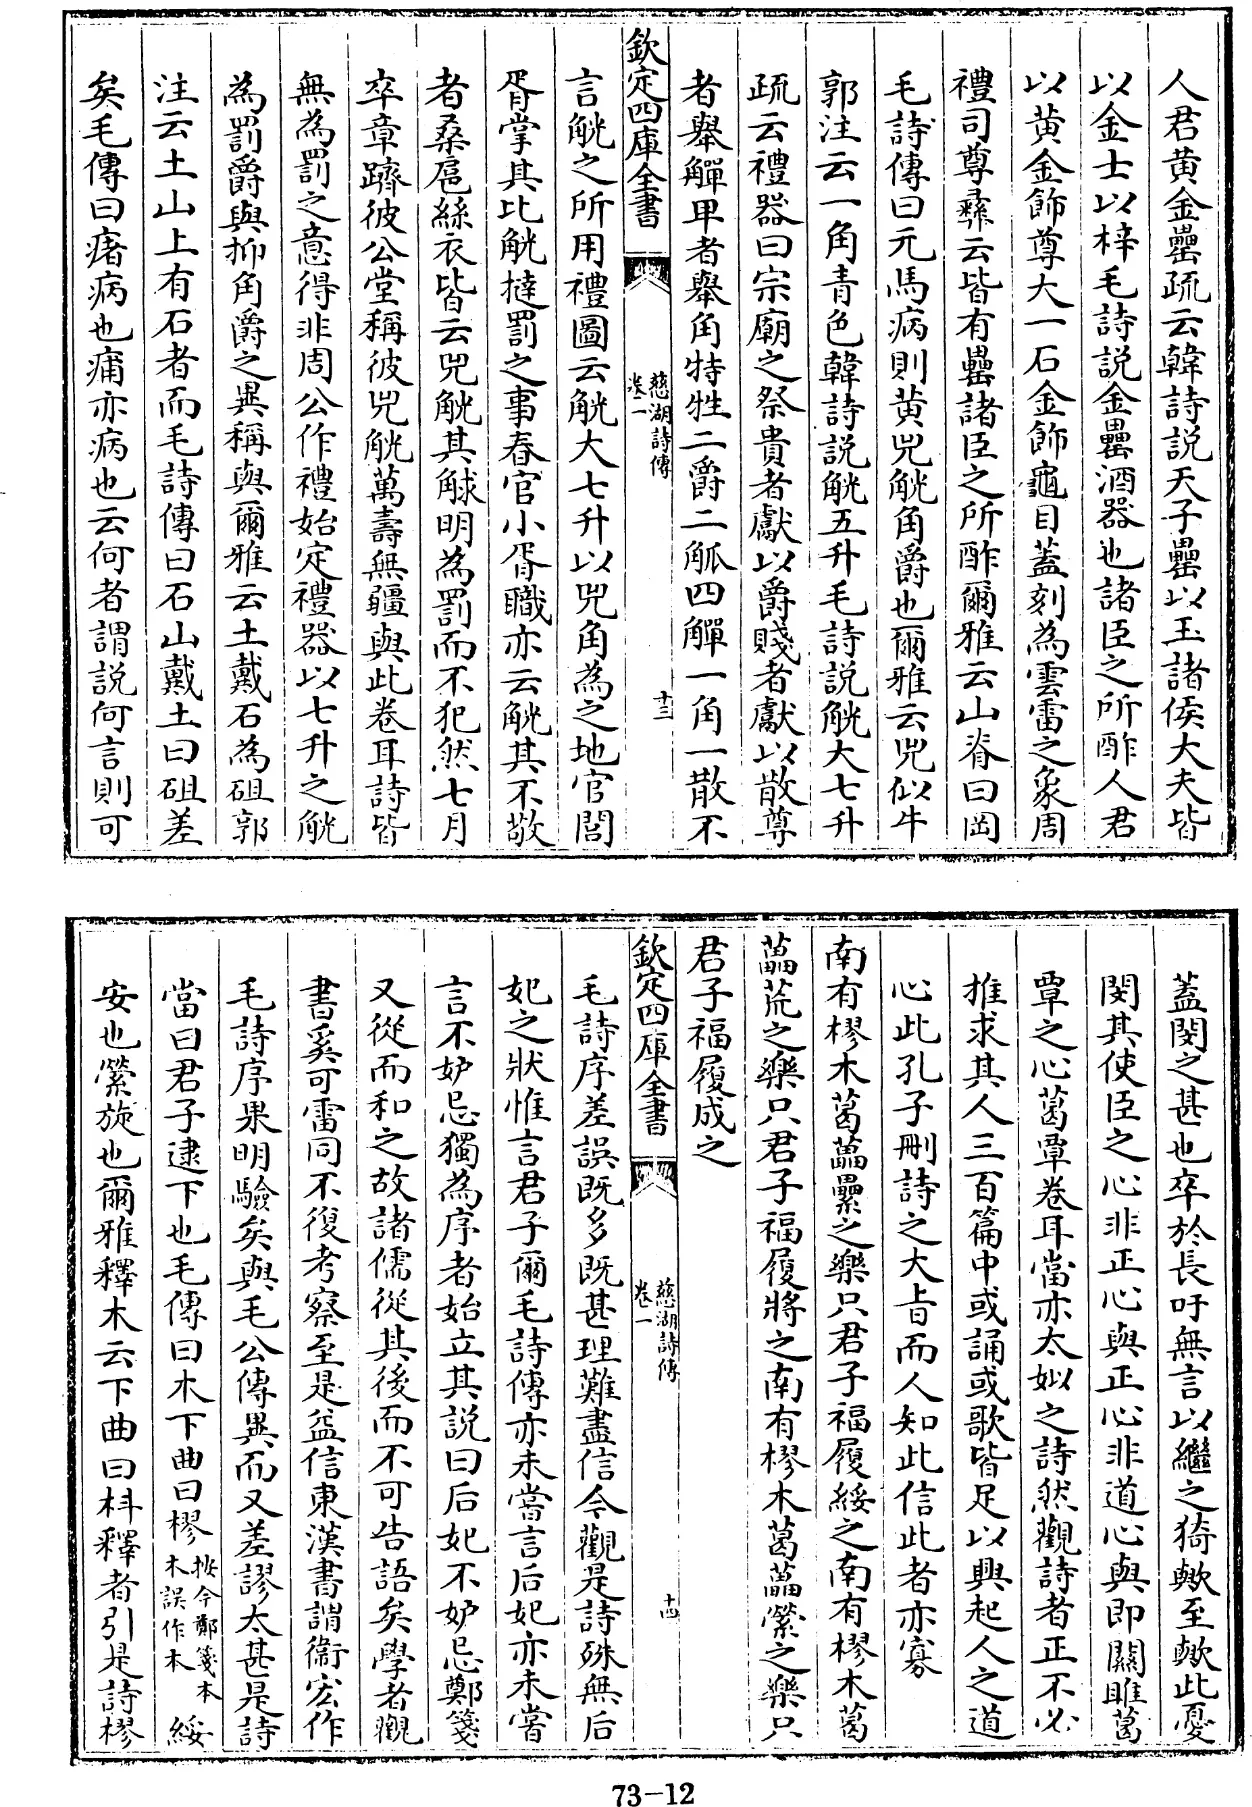 人君黄金罍疏云韓詩説天子罍以玉諸侯大夫皆
以金士以梓毛詩説金罍酒器也諸臣之所酢人君
以黄金飾尊大一石金飾龜目蓋刻為雲雷之象周
禮司尊彝云皆有罍諸臣之所酢爾雅云山脊曰岡
毛詩傳曰元馬病則黄兕觥角爵也爾雅云兕似牛
郭注云一角青色韓詩説觥五升毛詩説觥大七升
疏云禮器曰宗廟之祭貴者獻以爵賤者獻以散尊
者舉觶卑者舉角特牲二爵二觚四觶一角一散不
欽定四庫全書
慈湖詩傳
卷一
十三
言觥之所用禮圖云觥大七升以兕角為之地官閭
胥掌其比觥撻罰之事春官小胥職亦云觥其不敬
者桑扈絲衣皆云兕觥其觩明為罰而不犯然七月
卒章躋彼公堂稱彼兕觥萬壽無疆與此卷耳詩皆
無為罰之意得非周公作禮始定禮器以七升之觥
為罰爵與抑角爵之異稱與爾雅云土戴石為砠郭
注云土山上有石者而毛詩傳曰石山戴土曰砠差
矣毛傳曰瘏病也痡亦病也云何者謂説何言則可
蓋閔之甚也卒於長吁無言以繼之猗歟至歟此憂
閔其使臣之心非正心與正心非道心與即關雎葛
覃之心葛覃卷耳當亦太姒之詩然觀詩者正不必
推求其人三百篇中或誦或歌皆足以興起人之道
心此孔子刪詩之大旨而人知此信此者亦寡
南有樛木葛藟纍之樂只君子福履綏之南有樛木葛
藟荒之樂只君子福履將之南有樛木葛藟縈之樂只
君子福履成之
欽定四庫全書
慈湖詩傳
卷一
十四
毛詩序差誤既多既甚理難盡信今觀是詩殊無后
妃之狀惟言君子爾毛詩傳亦未嘗言后妃亦未嘗
言不妒忌獨為序者始立其説曰后妃不妒忌鄭箋
又從而和之故諸儒從其後而不可告語矣學者觀
書奚可雷同不復考察至是益信東漢書謂衛宏作
毛詩序果明驗矣與毛公傳異而又差謬太甚是詩
當曰君子逮下也毛傳曰木下曲曰樛按今鄭箋本木誤作本綏
安也縈旋也爾雅釋木云下曲曰朻釋者引是詩樛
73-12